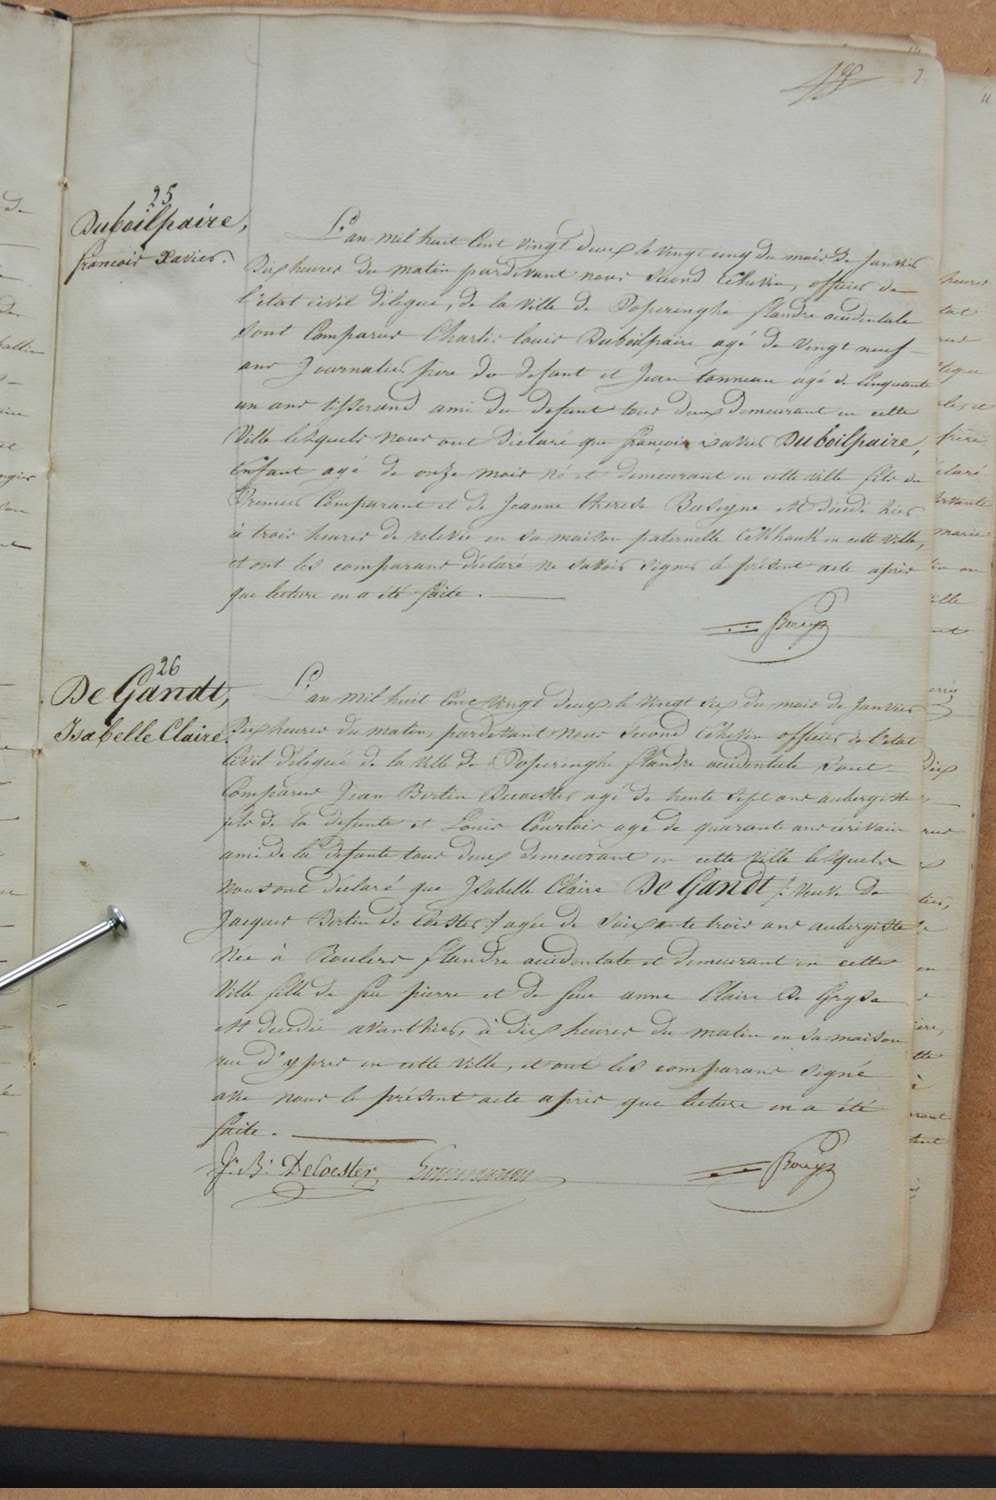 7
25
Duboilpaire,
françois Xavier.
L'an mil huit Cent vingt deux le vingt cinq du mois de Janvier
Dix heures du matin pardevant nous Second Echevin, officier de
l'état civil délégué, de la Ville de Poperinghe flandre occidentale
Sont Comparus Charles louis Duboilpaire agé de Vingt neuf
ans Journalier père du defunt et Jean tonneau agé de Cinquante
un ans tisserand ami du defunt tous deux demeurant en cette
Ville lesquels nous ont déclaré que françois xavier Duboilpaire,
Enfant agé de onze mois né et demeurant en cette ville fils du
Premier Comparant et de Jeanne therese Baseyne est décédé hier
à trois heures de relevée en sa maison paternelle en cette Ville,
et ont les comparans déclaré ne savoir signer le présent acte après
que lecture en a été faite.
26
De Gandt,
Isabelle Claire
L'an mil huit Cent vingt deux le vingt six du mois de Janvier
Dix heures du matin, pardevant nous Second Echevin officier de l'état
Civil délégué de la Ville de Poperinghe flandre occidentale Sont
Comparus Jean Bertin Decoester agé de trente sept ans aubergiste
fils de la defunte et Louis Courtois agé de quarante ans écrivain
ami de la defunte tous deux demeurant en cette ville lesquels
nous ont déclaré que Isabelle Claire De Gandt, Veuve de
Jacques Bertin De Coester, agée de Soixante trois ans aubergiste
Née à Roulers flandre occidentale et demeurant en cette
Ville fille de feu pierre et de feue anne Claire De Gryse
est decedée avanthier, à dix heures du matin en sa maison
rue d'ypres en cette Ville, et ont les comparans signé
avec nous le présent acte après que lecture en a été
faite.
J. B. DeCoester